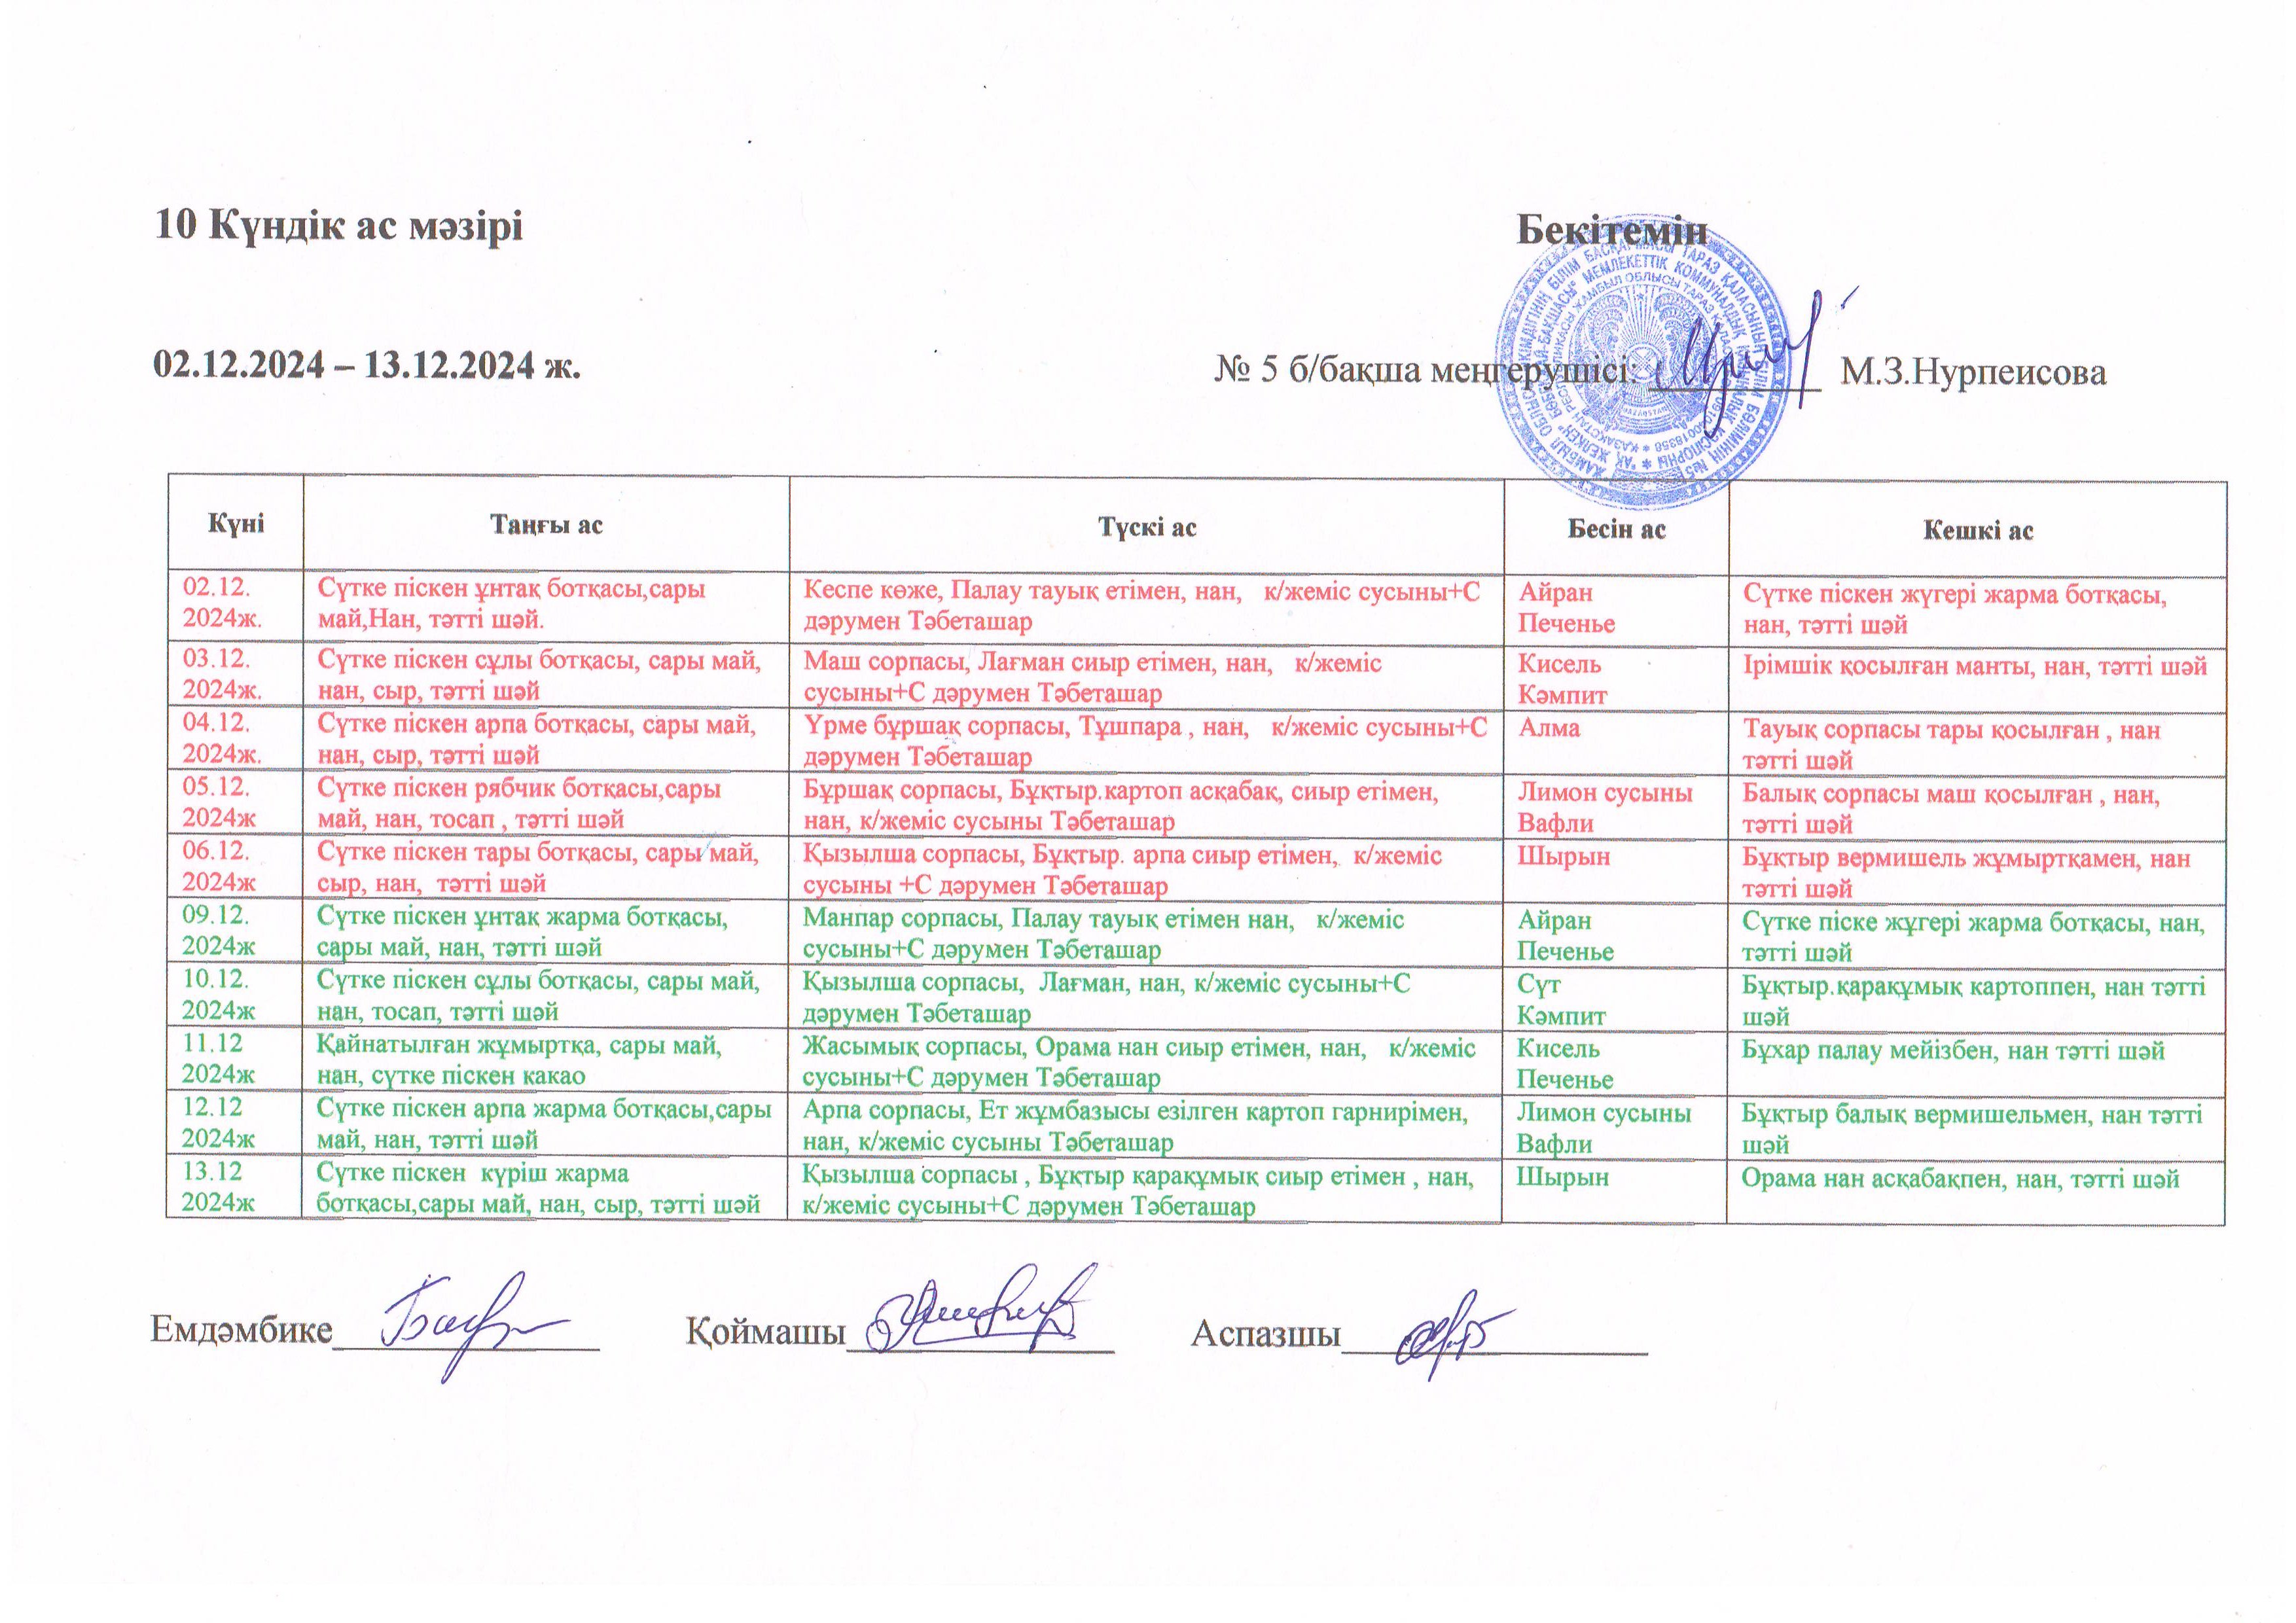 10 Күндік ас мәзірі
Бекітемін
02.12.2024 – 13.12.2024 ж.
№ 5 б/бақша меңгерушісі: М.З.Нурпеисова
Күні Таңғы ас Түскі ас Бесін ас Кешкі ас
02.12. Сүтке піскен ұнтақ ботқасы,сары Кеспе көже, Палау тауық етімен, нан, к/жеміс сусыны+С Айран Сүтке піскен жүгері жарма ботқасы,
2024ж. май,Нан, тәтті шәй. дәрумен Тәбеташар Печенье нан, тәтті шәй
03.12. Сүтке піскен сұлы ботқасы, сары май, Маш сорпасы, Лағман сиыр етімен, нан, к/жеміс Кисель Ірімшік қосылған манты, нан, тәтті шәй
2024ж. нан, сыр, тәтті шәй сусыны+С дәрумен Тәбеташар Кәмпит
04.12. Сүтке піскен арпа ботқасы, сары май, Үрме бұршақ сорпасы, Тұшпара , нан, к/жеміс сусыны+С Алма Тауық сорпасы тары қосылған , нан
2024ж. нан, сыр, тәтті шәй дәрумен Тәбеташар тәтті шәй
05.12. Сүтке піскен рябчик ботқасы,сары Бұршақ сорпасы, Бұқтыр.картоп асқабақ, сиыр етімен, Лимон сусыны Балық сорпасы маш қосылған , нан,
2024ж май, нан, тосап , тәтті шәй нан, к/жеміс сусыны Тәбеташар Вафли тәтті шәй
06.12. Сүтке піскен тары ботқасы, сары май, Қызылша сорпасы, Бұқтыр. арпа сиыр етімен, к/жеміс Шырын Бұқтыр вермишель жұмыртқамен, нан
2024ж сыр, нан, тәтті шәй сусыны +С дәрумен Тәбеташар тәтті шәй
09.12. Сүтке піскен ұнтақ жарма ботқасы, Манпар сорпасы, Палау тауық етімен нан, к/жеміс Айран Сүтке піске жұгері жарма ботқасы, нан,
2024ж сары май, нан, тәтті шәй сусыны+С дәрумен Тәбеташар Печенье тәтті шәй
10.12. Сүтке піскен сұлы ботқасы, сары май, Қызылша сорпасы, Лағман, нан, к/жеміс сусыны+С Сүт Бұқтыр.қарақұмық картоппен, нан тәтті
2024ж нан, тосап, тәтті шәй дәрумен Тәбеташар Кәмпит шәй
11.12 Қайнатылған жұмыртқа, сары май, Жасымық сорпасы, Орама нан сиыр етімен, нан, к/жеміс Кисель Бұхар палау мейізбен, нан тәтті шәй
2024ж нан, сүтке піскен какао сусыны+С дәрумен Тәбеташар Печенье
12.12 Сүтке піскен арпа жарма ботқасы,сары Арпа сорпасы, Ет жұмбазысы езілген картоп гарнирімен, Лимон сусыны Бұқтыр балық вермишельмен, нан тәтті
2024ж май, нан, тәтті шәй нан, к/жеміс сусыны Тәбеташар Вафли шәй
13.12 Сүтке піскен күріш жарма Қызылша сорпасы , Бұқтыр қарақұмық сиыр етімен , нан, Шырын Орама нан асқабақпен, нан, тәтті шәй
2024ж ботқасы,сары май, нан, сыр, тәтті шәй к/жеміс сусыны+С дәрумен Тәбеташар
Емдәмбике Қоймашы Аспазшы